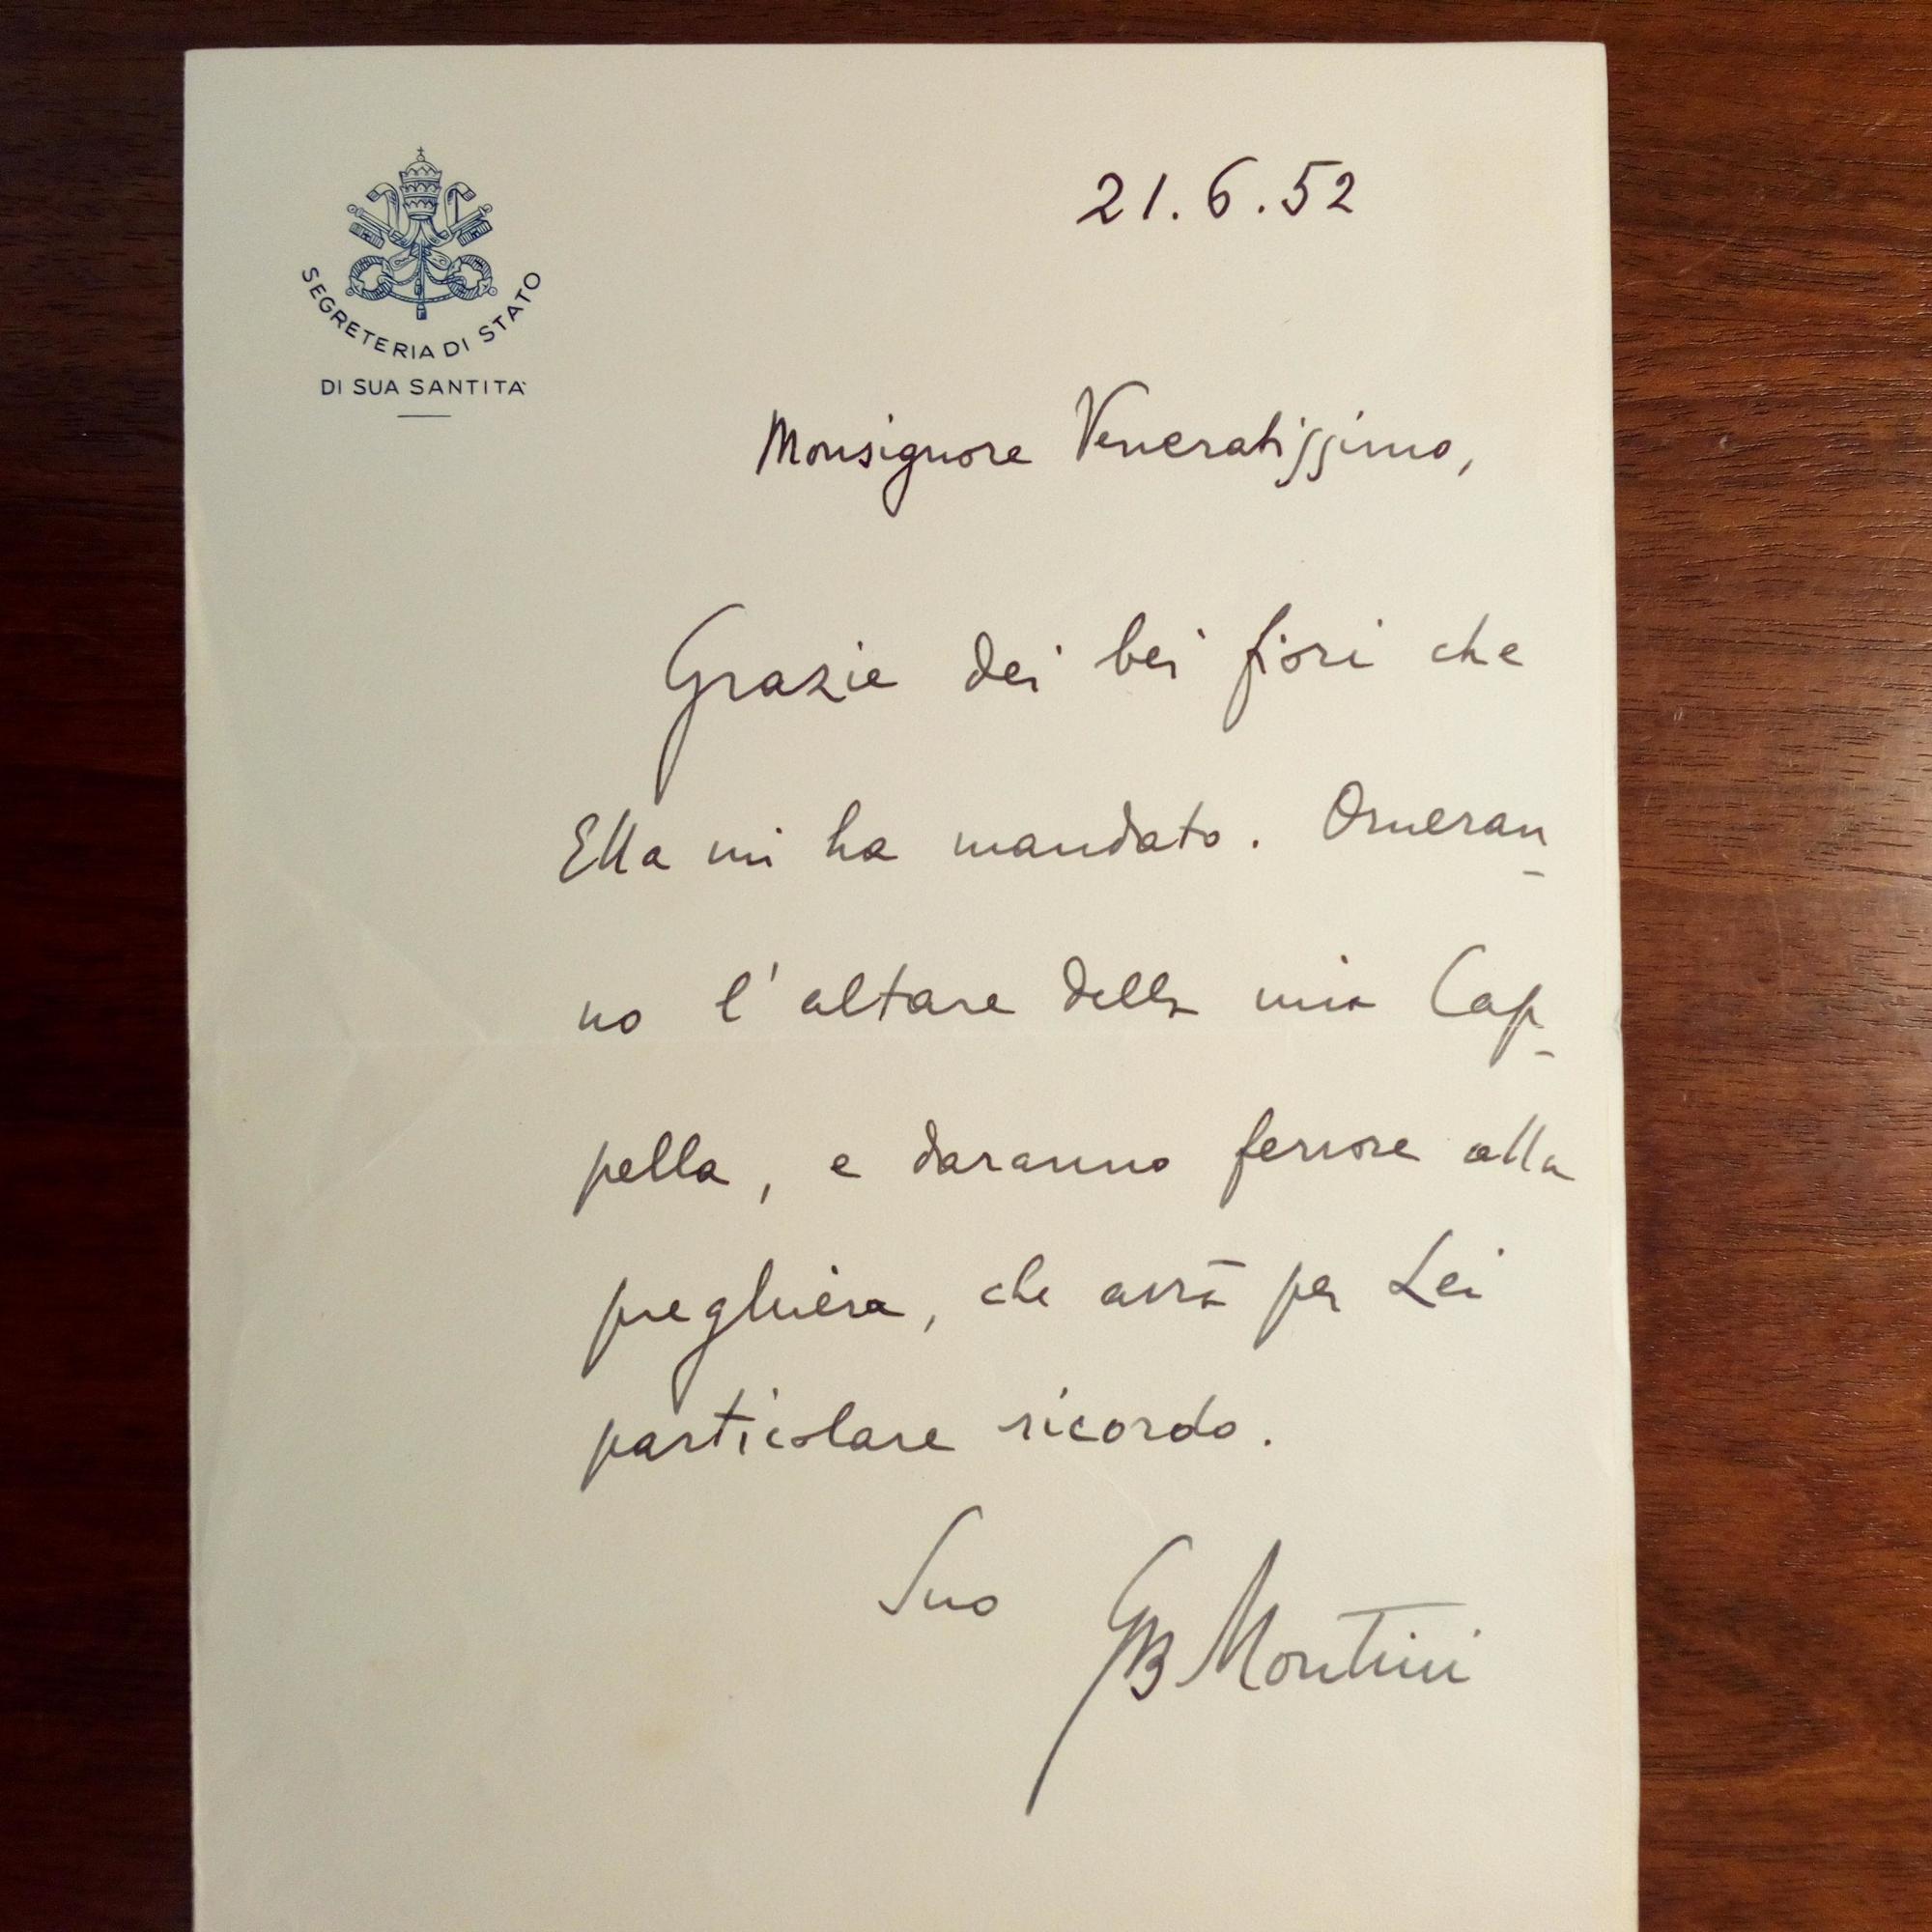 SEGRETERIA DI STATO
DI SUA SANTITA'
21.6.52
Monsignore Veneratissimo,
Grazie dei bei fiori che
Ella mi ha mandato. Orneran-
no l'altare della mia Cap-
pella, e daranno fervore alla
preghiera, che avrà per Lei
particolare ricordo.
Suo GB Montini